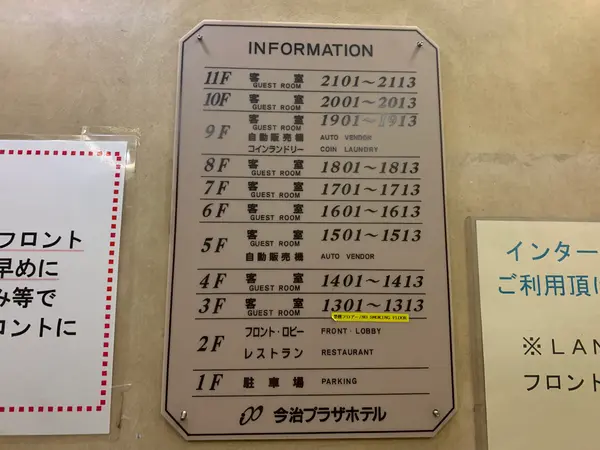 INFORMATION
11F 客室 GUEST ROOM 2101～2113
10F 客室 GUEST ROOM 2001～2013
9F 客室 GUEST ROOM 1901～1913
自動販売機 AUTO VENDOR
コインランドリー COIN LAUNDRY
8F 客室 GUEST ROOM 1801～1813
7F 客室 GUEST ROOM 1701～1713
6F 客室 GUEST ROOM 1601～1613
5F 客室 GUEST ROOM 1501～1513
自動販売機 AUTO VENDOR
4F 客室 GUEST ROOM 1401～1413
3F 客室 GUEST ROOM 1301～1313
禁煙フロアー/NO SMOKING FLOOR
2F フロント・ロビー FRONT・LOBBY
レストラン RESTAURANT
1F 駐車場 PARKING
今治プラザホテル
フロント
早めに
み等で
ロントに
インター
ご利用頂け
※LAN
フロント